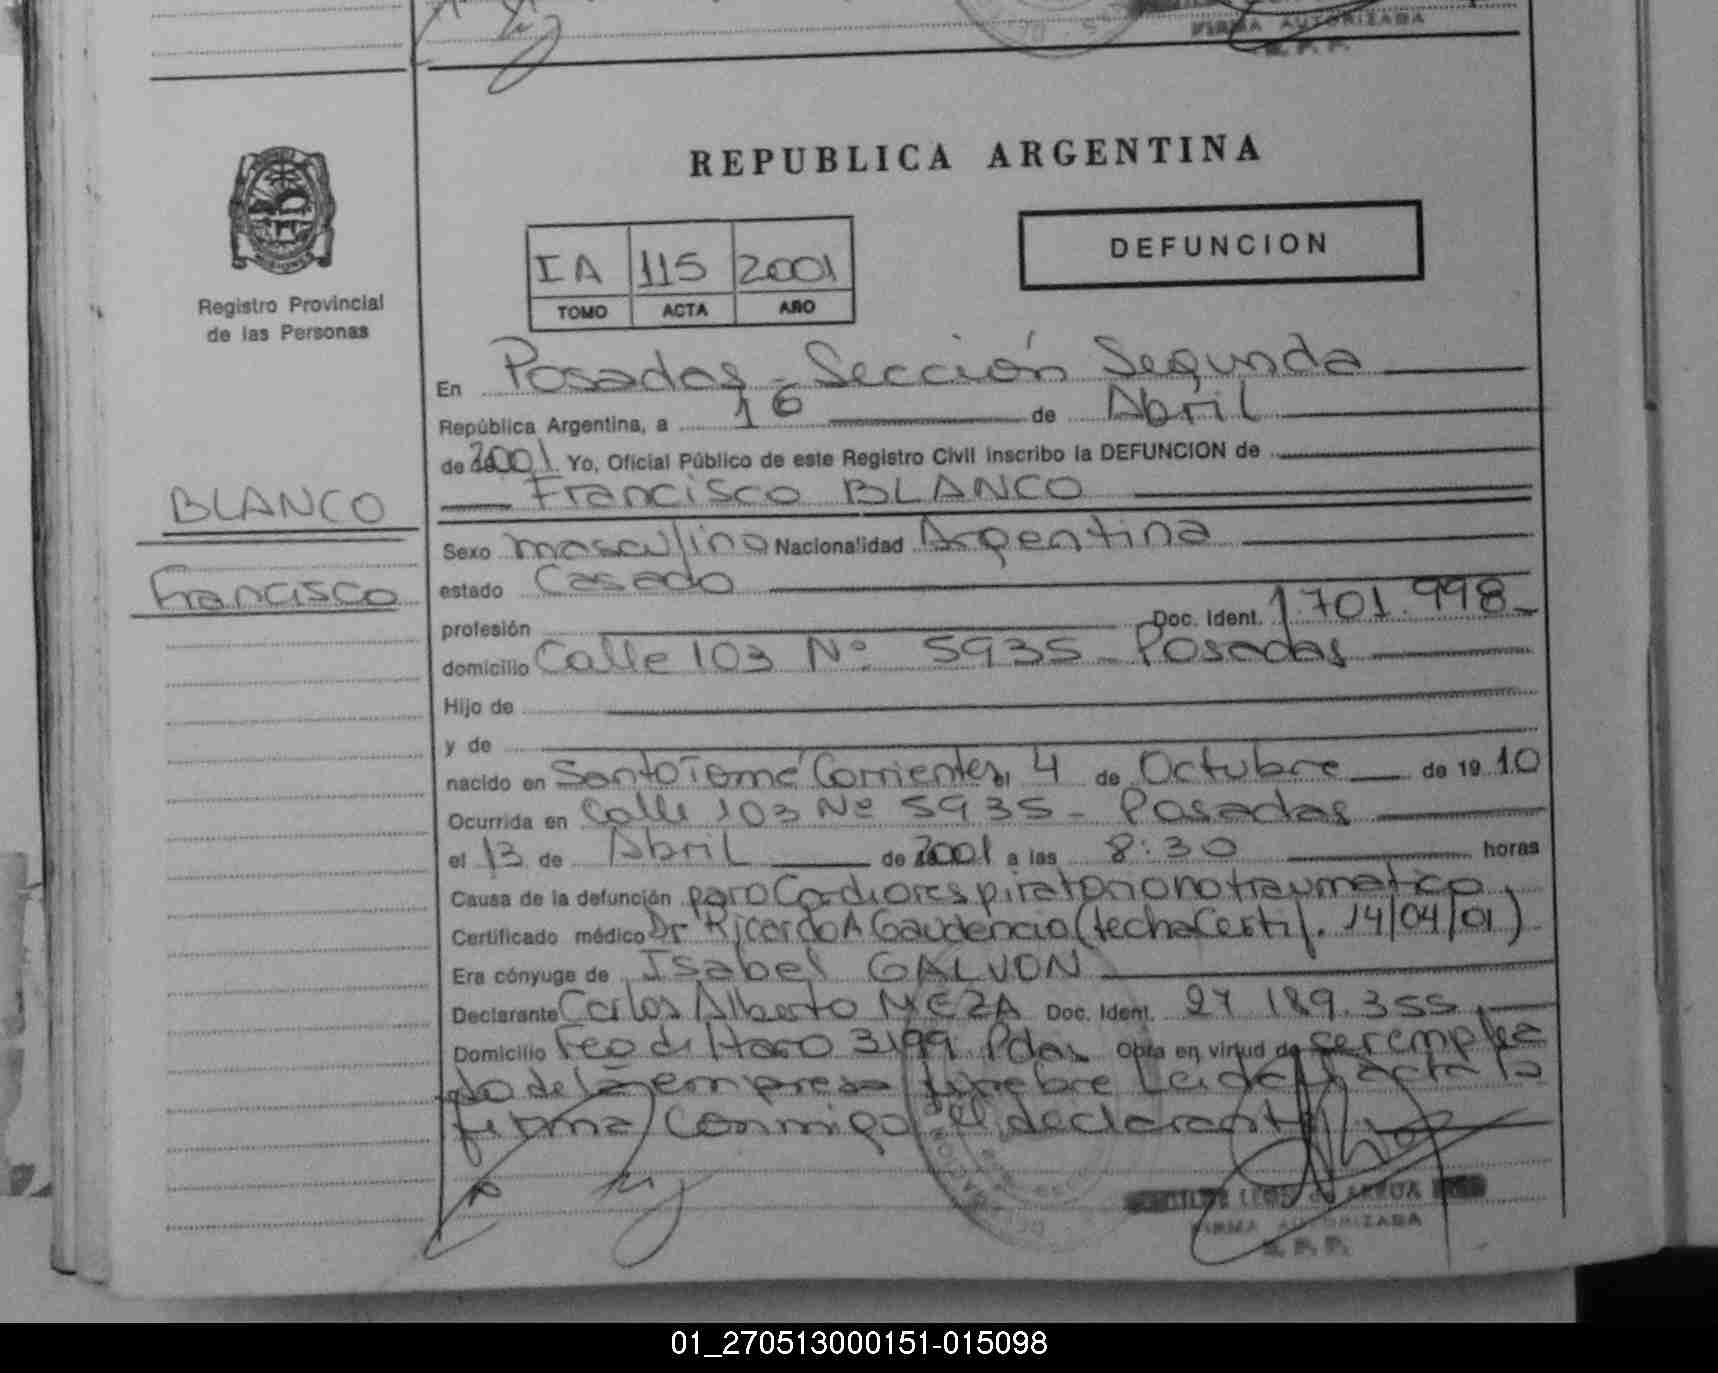 FIRMA AUTORIZADA
R. P. P.
REPUBLICA ARGENTINA
DEFUNCION
IA 115 2001
TOMO ACTA AÑO
MISIONES
Registro Provincial
de las Personas
En Posadas - Sección Segunda
República Argentina, a 16 de Abril
de 2001. Yo, Oficial Público de este Registro Civil inscribo la DEFUNCION de
Francisco BLANCO
BLANCO
Francisco
Sexo masculino Nacionalidad Argentina
estado Casado
profesión Doc. Ident. 1.701.998
domicilio Calle 103 Nº 5935 - Posadas
Hijo de
y de
nacido en Santo Tomé Corrientes, el 4 de Octubre de 1910
Ocurrida en Calle 103 Nº 5935 - Posadas
el 13 de Abril de 2001 a las 8:30 horas
Causa de la defunción paro Cardiorespiratorio no traumatico,
Certificado médico Dr Ricardo A Gaudencio (fecha Certif. 14/04/01)
Era cónyuge de Isabel GALVON
Declarante Carlos Alberto MEZA Doc. Ident. 27.189.355
Domicilio Fco de Haro 3199 Pdas Obra en virtud de ser emplea
do de la empresa funebre Leida el acta la
firma conmigo el declarante
FIRMA AUTORIZADA
R. P. P.
01_270513000151-015098